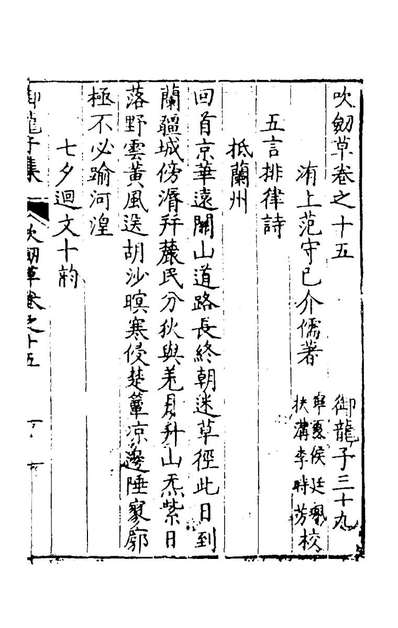 吹劒草卷之十五 御龍子三十九
洧上范守己介儒著 寧夏侯廷珮
扶溝李時芳校
五言排律詩
抵蘭州
回首京華遠關山道路長終朝迷草徑此日到
蘭疆城傍湣幵麓民分狄與羌月升山炁紫日
落野雲黃風送胡沙暝寒侵楚簟凉邊陲寥廓
極不必踰河湟
七夕迴文十韵
御龍子集
吹劒草卷之十五